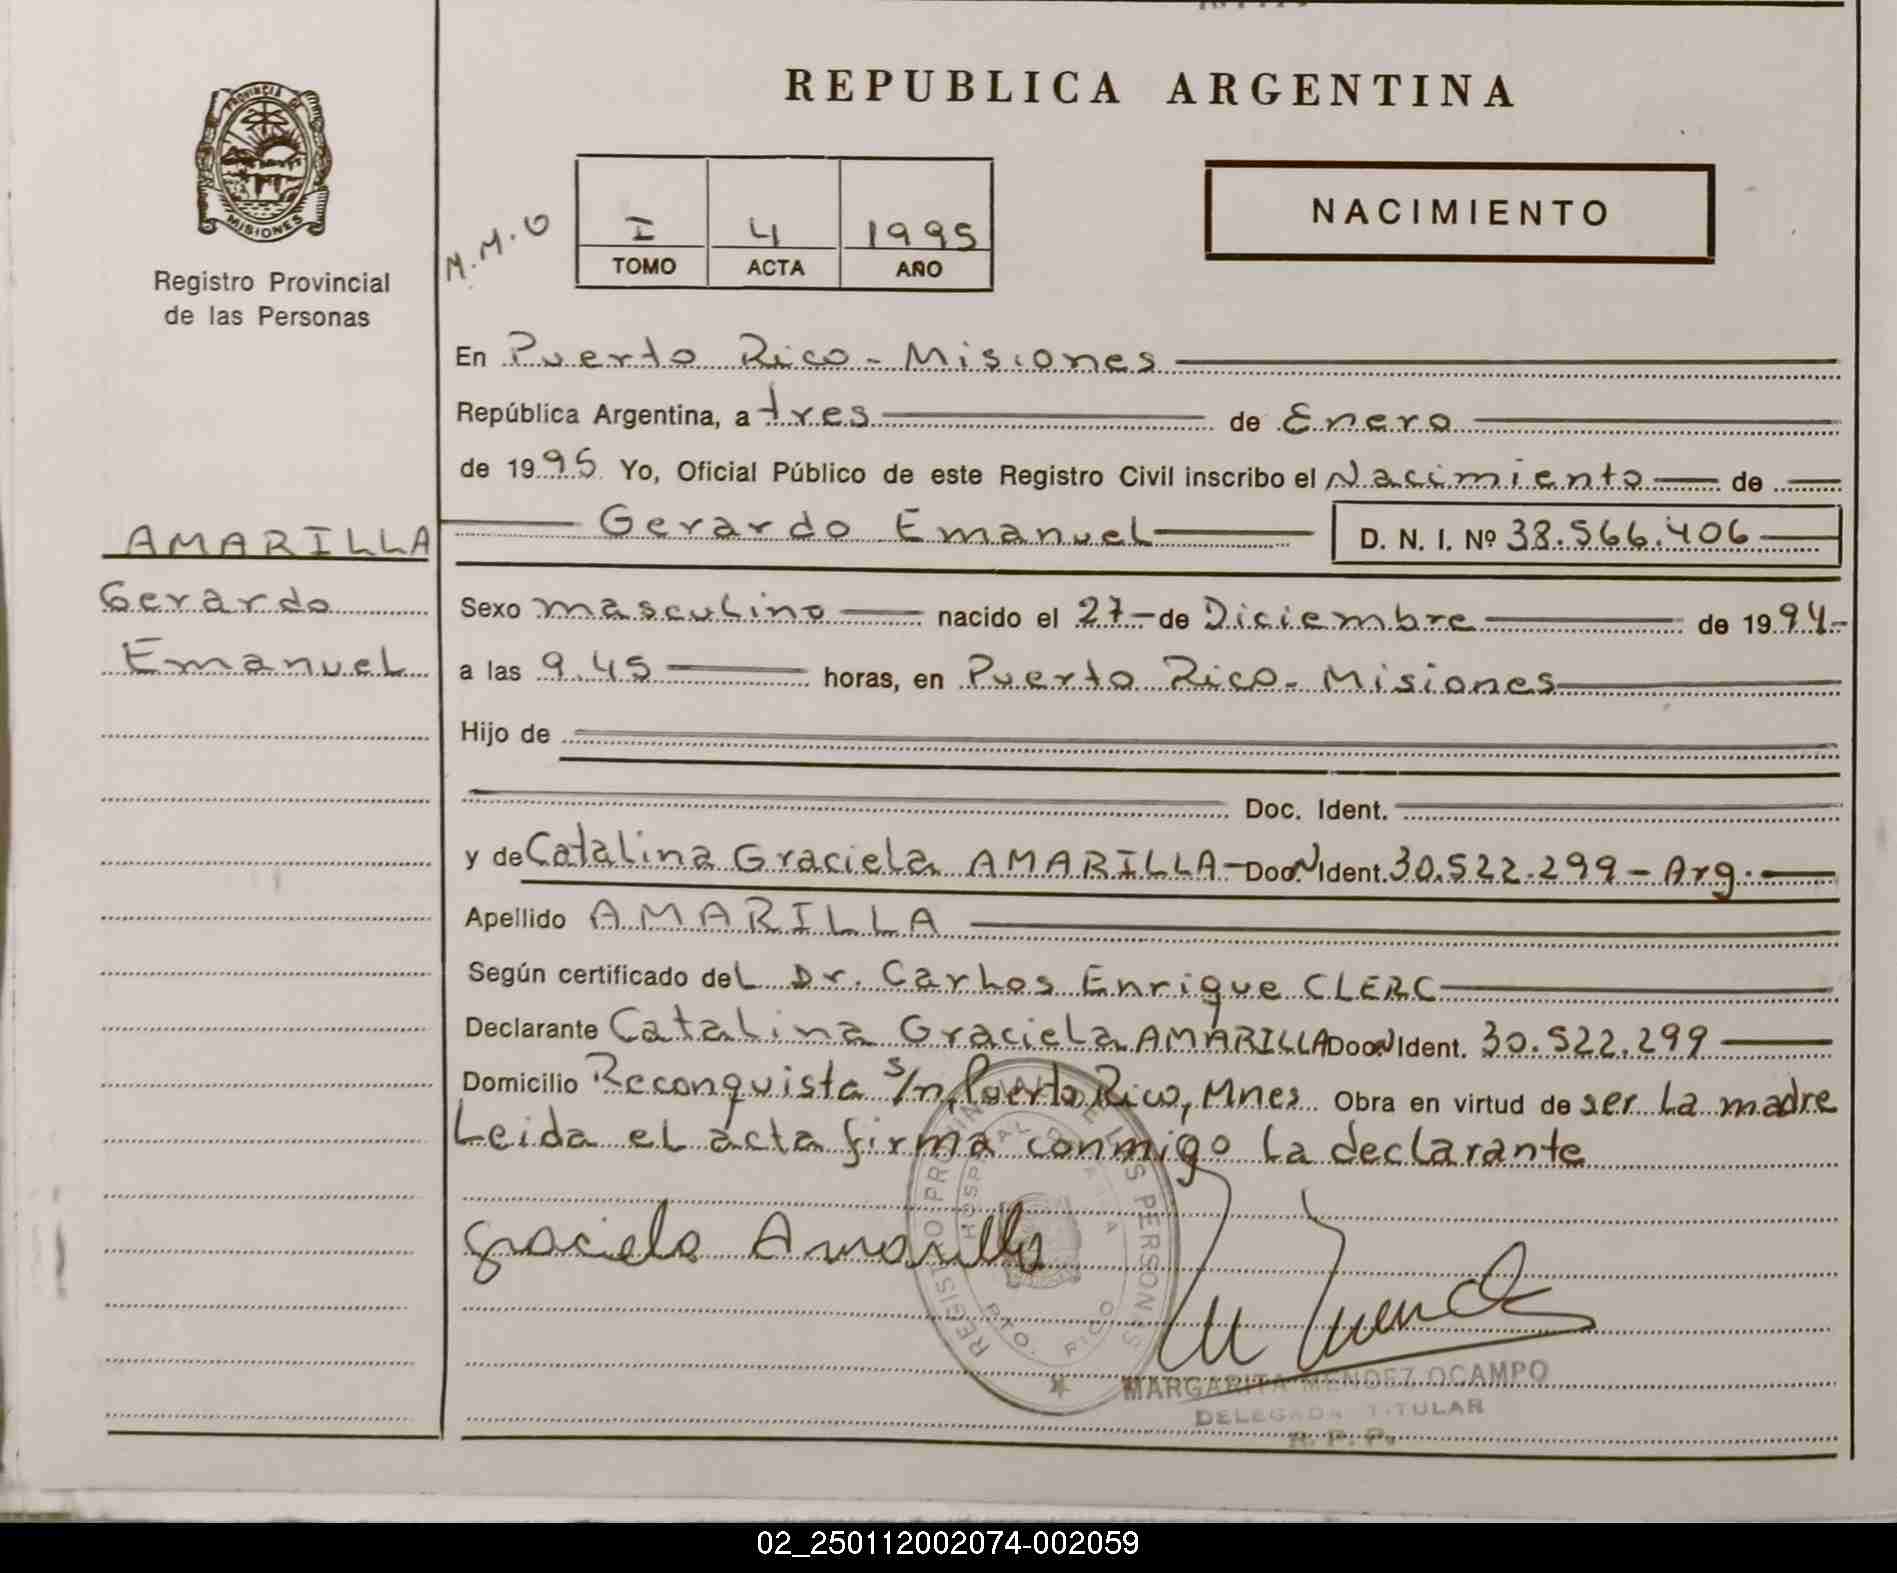 REPUBLICA ARGENTINA
PROVINCIA DE
MISIONES
Registro Provincial
de las Personas
M.M.O
I 4 1995
TOMO ACTA AÑO
NACIMIENTO
En Puerto Rico - Misiones
República Argentina, a tres de Enero
de 1995 Yo, Oficial Público de este Registro Civil inscribo el Nacimiento de
Gerardo Emanuel D. N. I. Nº 38.566.406
AMARILLA
Gerardo
Emanuel
Sexo masculino nacido el 27 - de Diciembre de 1994-
a las 9.45 horas, en Puerto Rico - Misiones
Hijo de
Doc. Ident.
y de Catalina Graciela AMARILLA - Doc. Ident. 30.522.299 - Arg.
Apellido AMARILLA
Según certificado del Dr. Carlos Enrique CLERC
Declarante Catalina Graciela AMARILLA Doc. Ident. 30.522.299
Domicilio Reconquista s/n, Puerto Rico, Mnes Obra en virtud de ser la madre
Leida el acta firma conmigo la declarante
Graciela Amarilla
REGISTRO PROVINCIAL DE LAS PERSONAS
HOSPITAL
PTO. RICO
MARGARITA MENDEZ OCAMPO
DELEGADA TITULAR
R. P. P.
02_250112002074-002059